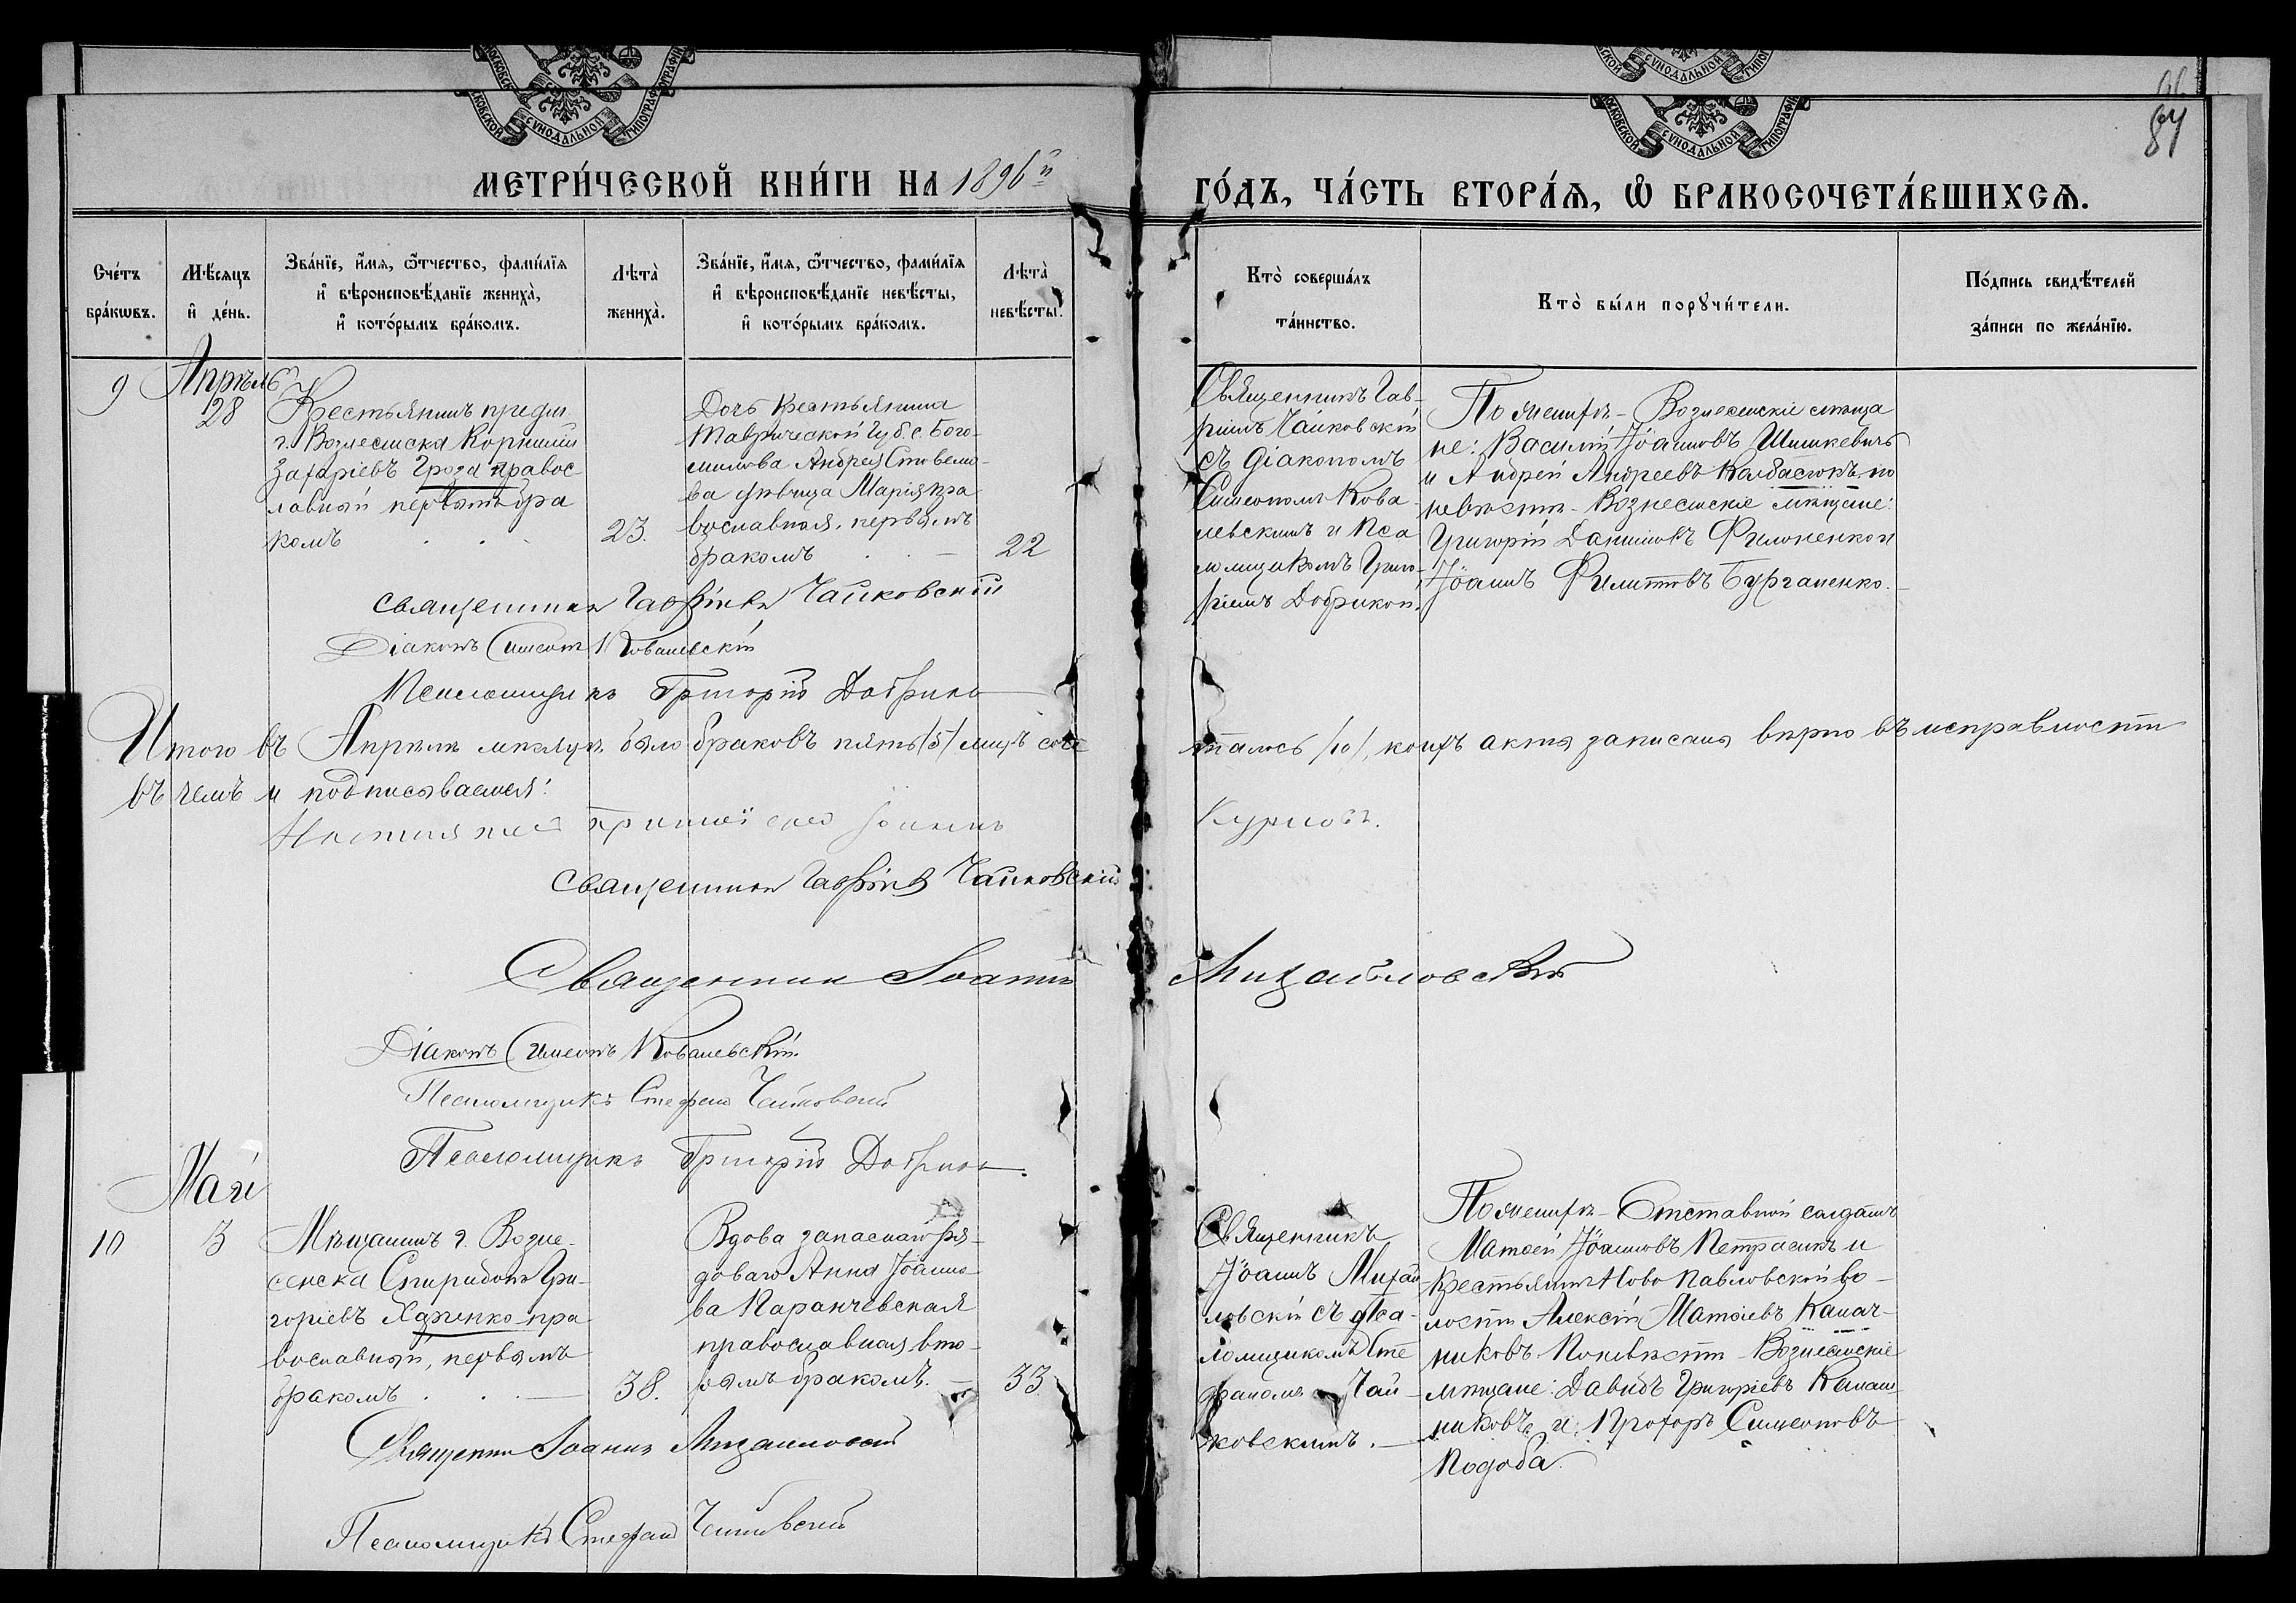 МОСКОВСКОЙ СѴНОДАЛЬНОЙ ТИПОГРАФІИ
84
МЕТРИ́ЧЕСКОЙ КНИ́ГИ НА 1896й ГО́ДЪ, ЧА́СТЬ ВТОРА́Ѧ, Ѡ҆ БРАКОСОЧЕТА́ВШИХСѦ.
Сче́тъ бра́кѡвъ.
Мѣ́сѧцъ и҆ де́нь.
Зва́нїе, и҆́мѧ, ѻ҆́тчество, фами́лїѧ и҆ вѣроисповѣ́данїе жениха̀, и҆ кото́рымъ бра́комъ.
Лѣта̀ жениха̀.
Зва́нїе, и҆́мѧ, ѻ҆́тчество, фами́лїѧ и҆ вѣроисповѣ́данїе невѣ́сты, и҆ кото́рымъ бра́комъ.
Лѣта̀ невѣ́сты.
Кто̀ соверша́лъ та́инство.
Кто̀ бы́ли порꙋчи́тели.
По́дпись свидѣ́телей за́писи по жела́нїю.
9
Апрѣль
28
Крестьянинъ предм.
г. Вознесенска Корнилій
Захаріевъ Гроза правос
лавный первымъ бра
комъ
23.
Дочь крестьянина
Таврической губ. с. Бого-
Андрея
ва дѣвица Марія пра
вославная, первымъ
бракомъ
22
Священникъ Гав-
ріилъ Чайковскій
съ Діакономъ
Симеономъ Кова-
левскимъ и Пса
ломщикомъ Григо-
ріемъ Добрикои.
По женихѣ - Вознесенскіе мѣща
не: Василій Іоанновъ Шишкевичъ
и Андрей Андреевъ Колбасюкъ, по
невѣстѣ - Вознесенскіе мѣщане:
Григорій Даниловъ Филоненко и
Іоаннъ Филипповъ Бурганенко.
Священникъ Гавріилъ Чайковскій
Діаконъ Симеонъ Ковалевскій
Псаломщикъ Григорій Добрика
Итого въ Апрѣлѣ мѣсяцѣ было браковъ пять /5/ лицъ соче
талось /10/, коихъ акты записаны вѣрно въ исправности
въ чемъ и подписываемся:
Іоаннъ
Священникъ Гавріилъ Чайковскій
Священникъ Іоаннъ Михайловскій
Діаконъ Симеонъ Ковалевскій
Псаломщикъ Стефанъ Чайковскій
Псаломщикъ Григорій Добрика
Май
10
3
Мѣщанинъ г. Возне-
сенска Спиридонъ Гри-
горіевъ Харченко пра
вославный, первымъ
бракомъ
38.
Вдова запаснаго ря-
доваго Анна Іоанно-
ва Каранчевская
православная вто-
рымъ бракомъ.
33
Священникъ
Іоаннъ Михай
ловскій съ Пса-
ломщикомъ Сте
фаномъ Чай-
ковскимъ.
По женихѣ - Отставной солдатъ
Матѳей Іоанновъ Петрасикъ и
крестьянинъ Ново Павловской во-
лости Алексій Матѳіевъ Калач-
никовъ. По невѣстѣ - Вознесенскіе
мѣщане: Давидъ Григоріевъ Калаш
никовъ и Прохоръ Симеоновъ
Подоба.
Священникъ Іоаннъ Михайловскій
Псаломщикъ Стефанъ Чайковскій